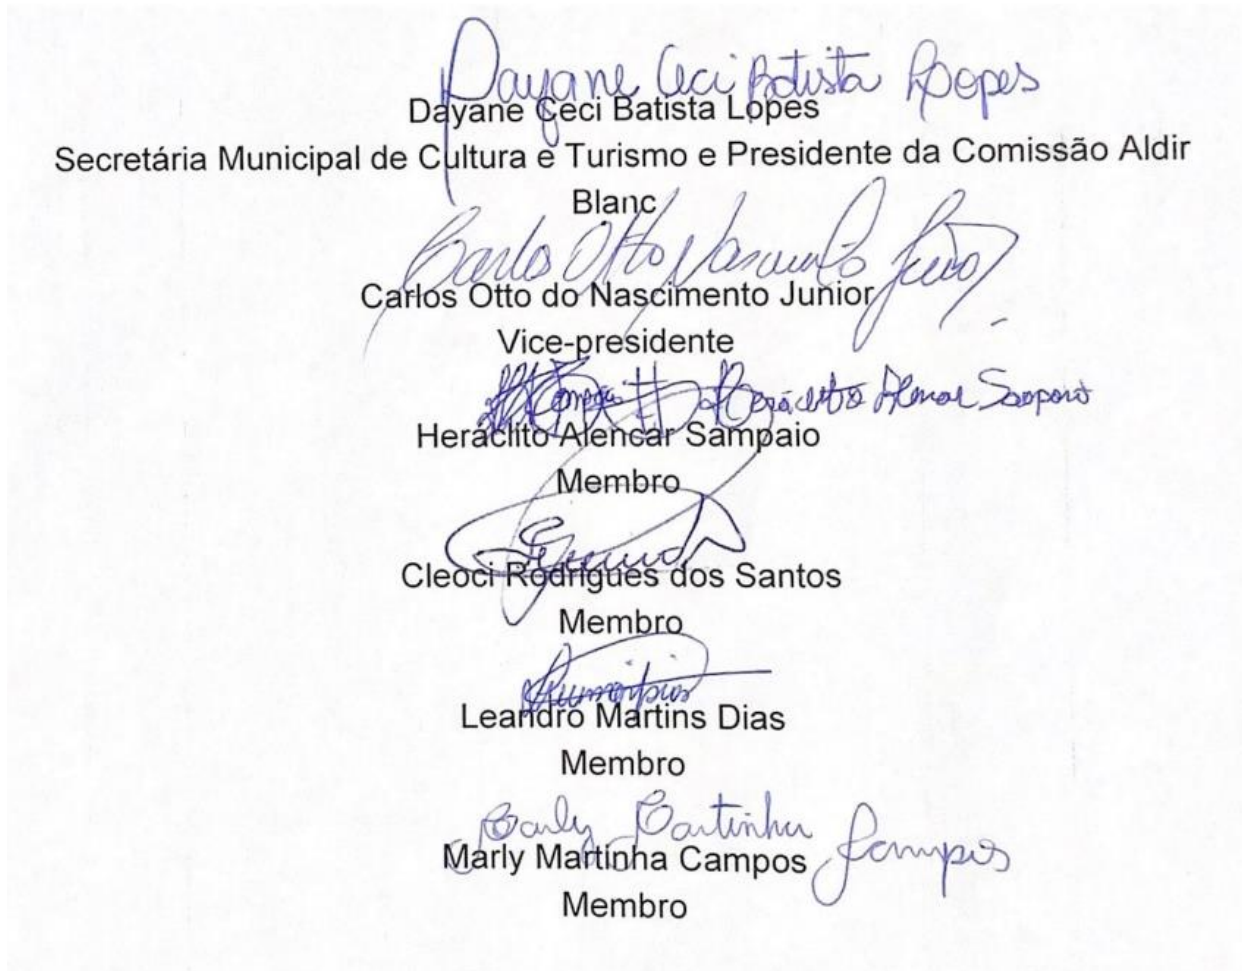 Dayane Ceci Batista Lopes
Dayane Ceci Batista Lopes
Secretária Municipal de Cultura e Turismo e Presidente da Comissão Aldir
Blanc
Carlos Otto Nascimento Junior
Carlos Otto do Nascimento Junior
Vice-presidente
Heráclito Alencar Sampaio
Heráclito Alencar Sampaio
Membro
Cleoci Rodrigues dos Santos
Membro
Leandro Martins Dias
Membro
Marly Martinha Campos
Marly Martinha Campos
Membro